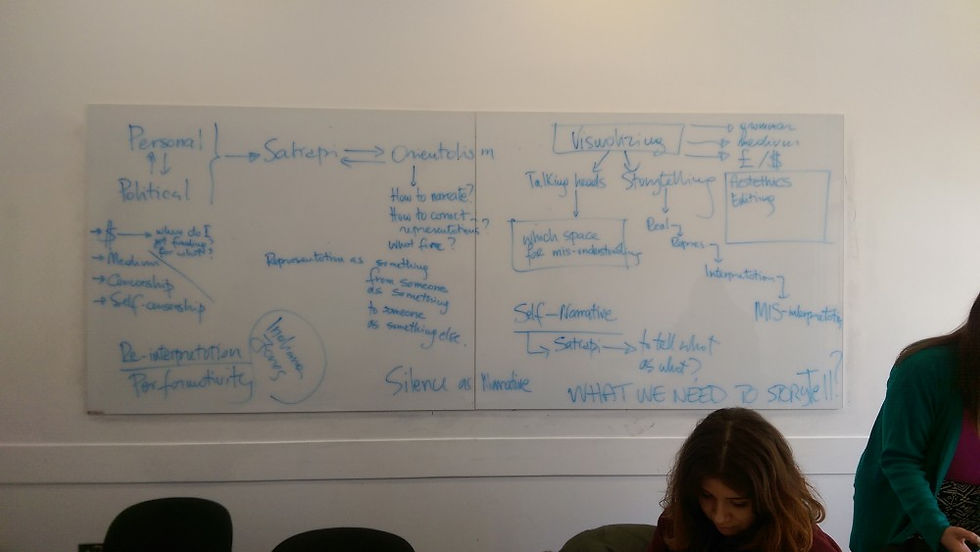 Personal
Political
Satrapi
Orientalism
How to narrate?
How to correct
representations?
what for?
$ → where do I
get funding
for what?
→ Medium
→ Censorship
→ Self-censorship
Representation as something
from someone
as something
to someone
as something else.
Re-interpretation
Performativity
Silence as Narrative
Visualizing
grammar
medium
£/$
Talking heads
Storytelling
which space
for mis-understanding
Real
Repres
Interpretation
MIS-interpretation
Editing
Self-Narrative
Satrapi → to tell what
as what?
WHAT WE NEED TO